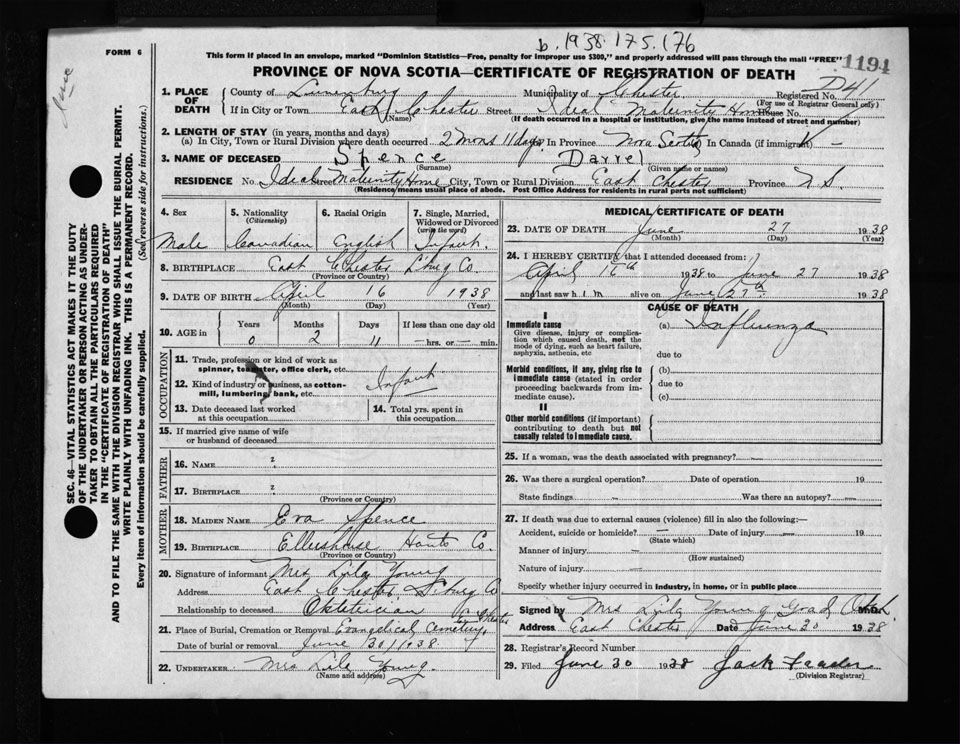 b. 1938. 175. 176
FORM 6
This form if placed in an envelope, marked "Dominion Statistics—Free, penalty for improper use $300," and properly addressed will pass through the mail "FREE"
1194
PROVINCE OF NOVA SCOTIA—CERTIFICATE OF REGISTRATION OF DEATH
June
SEC. 46—VITAL STATISTICS ACT MAKES IT THE DUTY
OF THE UNDERTAKER OR PERSON ACTING AS UNDER-
TAKER TO OBTAIN ALL THE PARTICULARS REQUIRED
IN THE "CERTIFICATE OF REGISTRATION OF DEATH"
AND TO FILE THE SAME WITH THE DIVISION REGISTRAR WHO SHALL ISSUE THE BURIAL PERMIT.
WRITE PLAINLY WITH UNFADING INK. THIS IS A PERMANENT RECORD.
Every item of information should be carefully supplied. (See reverse side for instructions.)
1. PLACE OF DEATH County of Lunenburg Municipality of Chester Registered No. D41
(For use of Registrar General only)
If in City or Town East Chester Street Ideal Maternity Home House No.
(Name) (If death occurred in a hospital or institution, give the name instead of street and number)
2. LENGTH OF STAY (in years, months and days)
(a) In City, Town or Rural Division where death occurred 2 mons 11 days In Province Nova Scotia In Canada (if immigrant) —
3. NAME OF DECEASED Spence Darrel
(Surname) (Given name or names)
RESIDENCE No. Ideal Street Maternity Home City, Town or Rural Division East Chester Province N.S.
(Residence means usual place of abode. Post Office Address for residents in rural parts not sufficient)
4. Sex Male
5. Nationality (Citizenship) Canadian
6. Racial Origin English
7. Single, Married, Widowed or Divorced (write the word) Infant.
8. BIRTHPLACE East Chester L'burg Co.
(Province or Country)
9. DATE OF BIRTH April 16 1938
(Month) (Day) (Year)
10. AGE in Years Months Days If less than one day old
0 2 11 — hrs. or — min.
OCCUPATION
11. Trade, profession or kind of work as spinner, teamster, office clerk, etc.
12. Kind of industry or business, as cotton-mill, lumbering, bank, etc. Infant
13. Date deceased last worked at this occupation
14. Total yrs. spent in this occupation
15. If married give name of wife or husband of deceased
FATHER
16. NAME ?
17. BIRTHPLACE ?
(Province or Country)
MOTHER
18. MAIDEN NAME Eva Spence
19. BIRTHPLACE Ellershouse Hants Co.
(Province or Country)
20. Signature of informant Mrs Lila Young
Address East Chester L'burg Co
Relationship to deceased Obstetrician
21. Place of Burial, Cremation or Removal Evangelical Cemetery, Chester
Date of burial or removal June 30/1938
22. UNDERTAKER Mrs Lila Young.
(Name and address)
MEDICAL CERTIFICATE OF DEATH
23. DATE OF DEATH June 27 1938
(Month) (Day) (Year)
24. I HEREBY CERTIFY that I attended deceased from:
April 16th 1938 to June 27 1938
and last saw him alive on June 27th 1938
CAUSE OF DEATH
I
Immediate cause
Give disease, injury or complication which caused death, not the mode of dying, such as heart failure, asphyxia, asthenia, etc
(a) Influenza
due to
Morbid conditions, if any, giving rise to immediate cause (stated in order proceeding backwards from immediate cause).
(b)
due to
(c)
II
Other morbid conditions (if important) contributing to death but not causally related to immediate cause.
25. If a woman, was the death associated with pregnancy? —
26. Was there a surgical operation? — Date of operation 19
State findings — Was there an autopsy? —
27. If death was due to external causes (violence) fill in also the following:—
Accident, suicide or homicide? — Date of injury — 19
(State which)
Manner of injury —
(How sustained)
Nature of injury —
Specify whether injury occurred in industry, in home, or in public place
Signed by Mrs Lila Young Grad Obst. M.D.
Address East Chester Date June 30 1938
28. Registrar's Record Number
29. Filed June 30 1938 Jack
(Division Registrar)